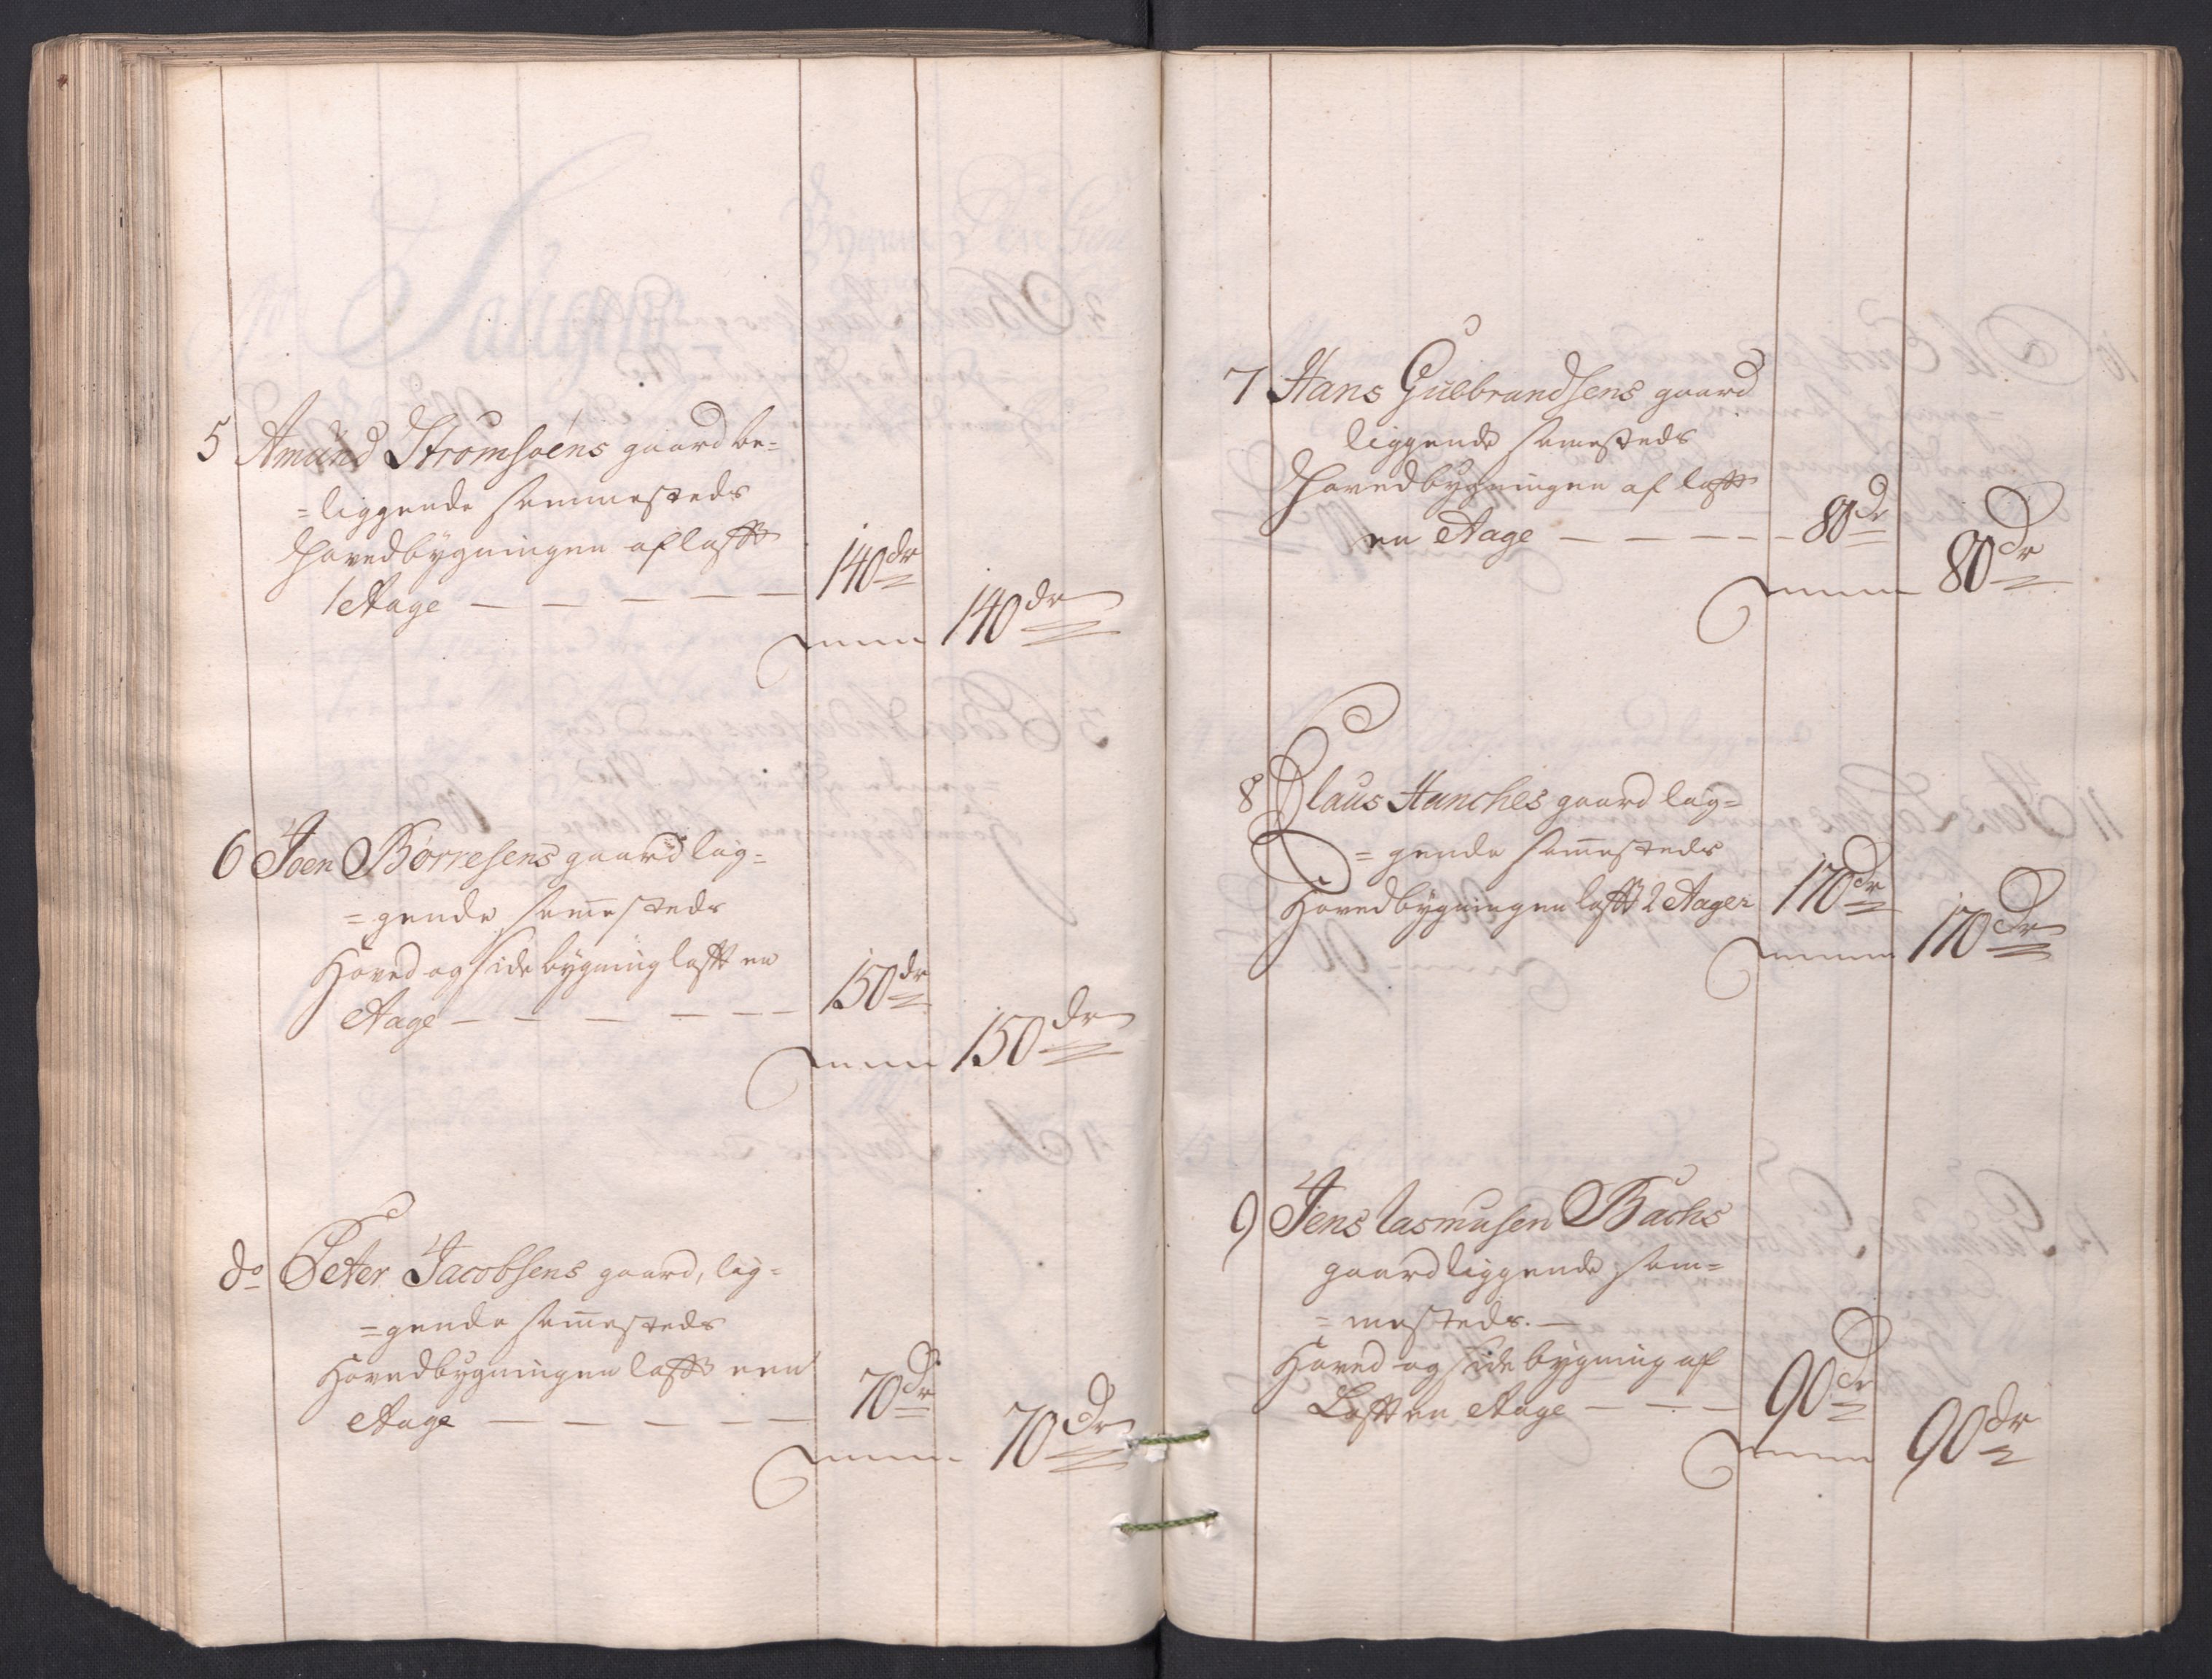 5 Amund Strømsøens gaard be-
=liggende sammesteds
Hovedbygningen af laft
1 Etage — — — — — 140 dr
Summa 140 dr
6 Joen Børresens gaard lig-
=gende sam̄esteds
Hoved og side bygning laft en
Etage — — — — — — 150 dr
Summa 150 dr
do Peter Jacobsens gaard, lig-
=gende sam̄esteds
Hovedbygningen laft een
Etage — — — — — 70 dr
Summa 70 dr
7 Hans Gulbrandsens gaard
liggende samesteds
Hovedbygningen af laft
en Etage — — — — — 80 dr
Summa 80 dr
8 Claus Hanches gaard lig=
=gende sam̄esteds
Hovedbygningen laft 2 Etager 170 dr
Summa 170 dr
9 Jens Rasmusen Bachs
gaard liggende sam=
=mesteds. —
Hoved og side bygning af
Laft en Etage — — — 90 dr
Summa 90 dr